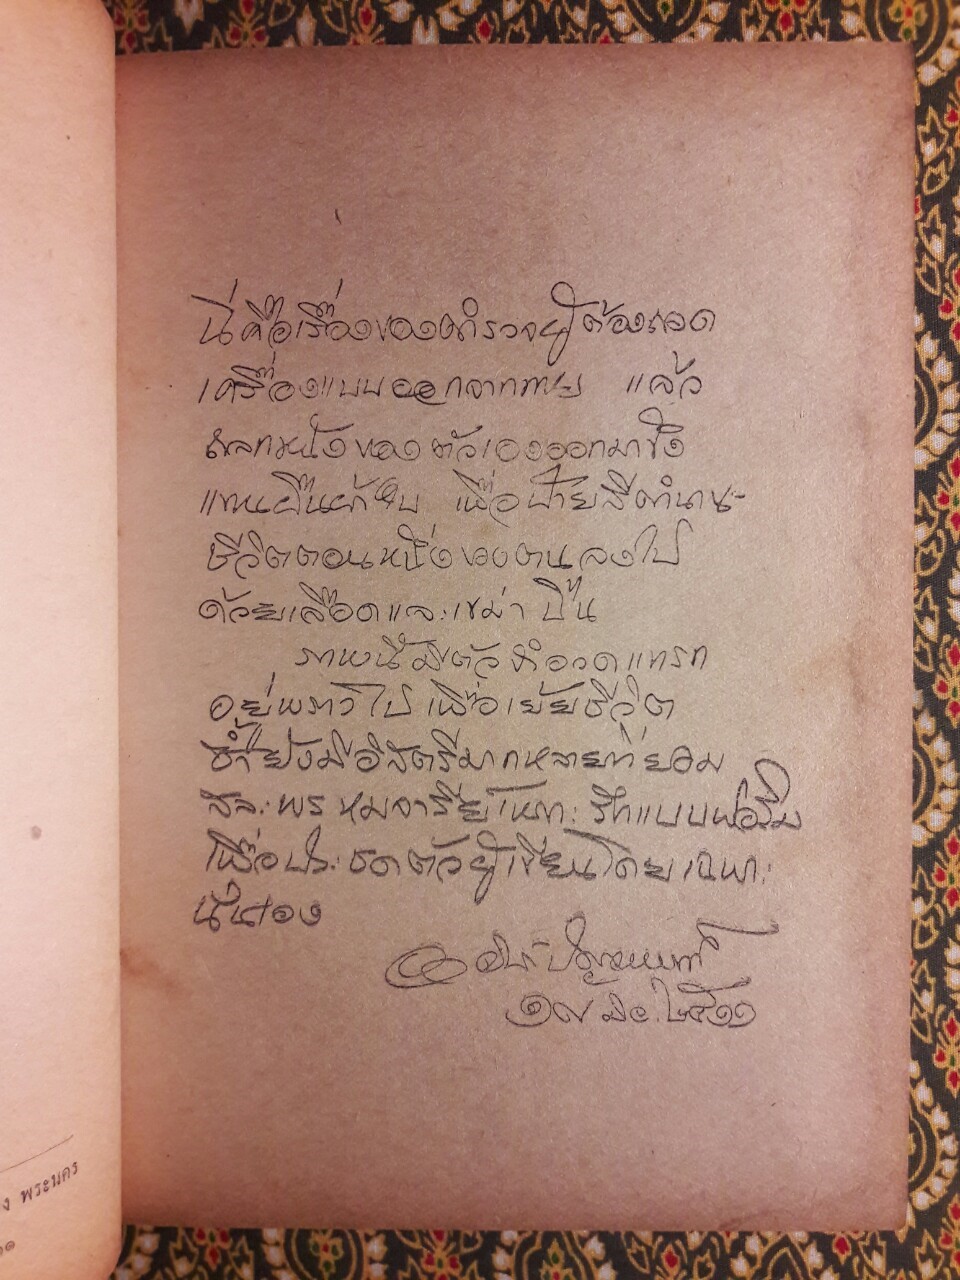 นี่คือเรื่องของตำรวจผู้ต้องถอด
เครื่องแบบออกจากกาย แล้ว
ถลกหนังของตัวเองออกมาขึง
แทนผืนผ้าใบ เพื่อป้ายสีตำนาน
ชีวิตตอนหนึ่งของตนลงไป
ด้วยเลือดและเขม่าปืน
ภาพนี้มีตัว
อยู่พราวไป เพื่อเย้ยชีวิต
ซ้ำยังมีอิสตรีมากหลายที่ยอม
สละพรหมจารีย์
เพื่อประชดตัวผู้เขียนโดยเฉพาะ
นั่นเอง
๑๗ มิย. ๒๕๑๑
ง พระนคร